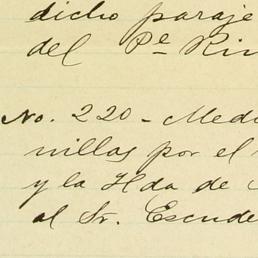 dicho paraje
del Pe Rin
No. 220 - Medi
nillas por el
y la Hda de
al Sr. Escude